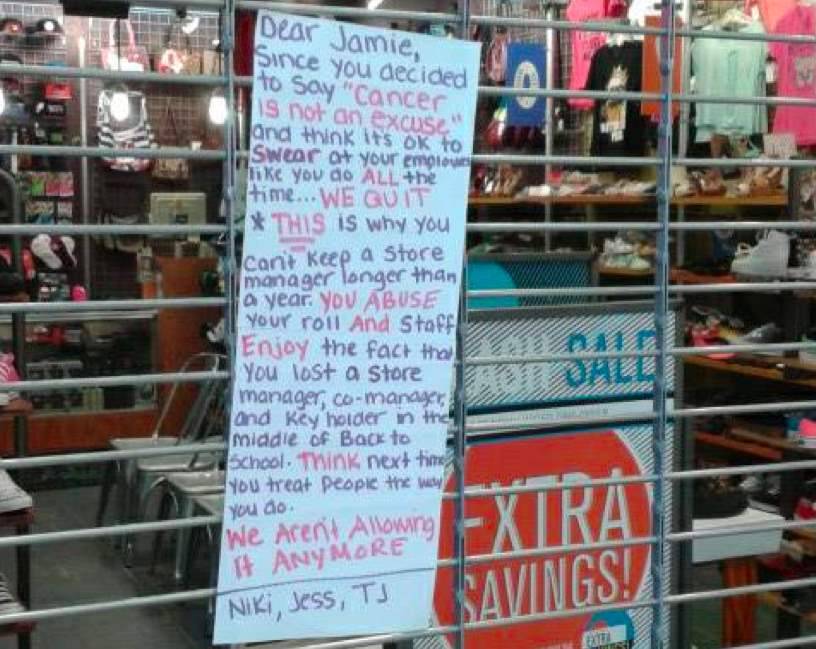 Dear Jamie,
Since you decided
to say "Cancer
is not an excuse"
and think its ok to
Swear at your employees
like you do ALL the
time... WE QUIT
* THIS is why you
can't keep a store
manager longer than
a year. YOU ABUSE
your roll And Staff
Enjoy the fact that
You lost a store
manager, co-manager,
and Key holder in the
middle of Back to
School. Think next time
you treat people the way
you do.
We Aren't Allowing
It ANYMORE
Niki, Jess, TJ
SALE
EXTRA
SAVINGS!
EXTRA